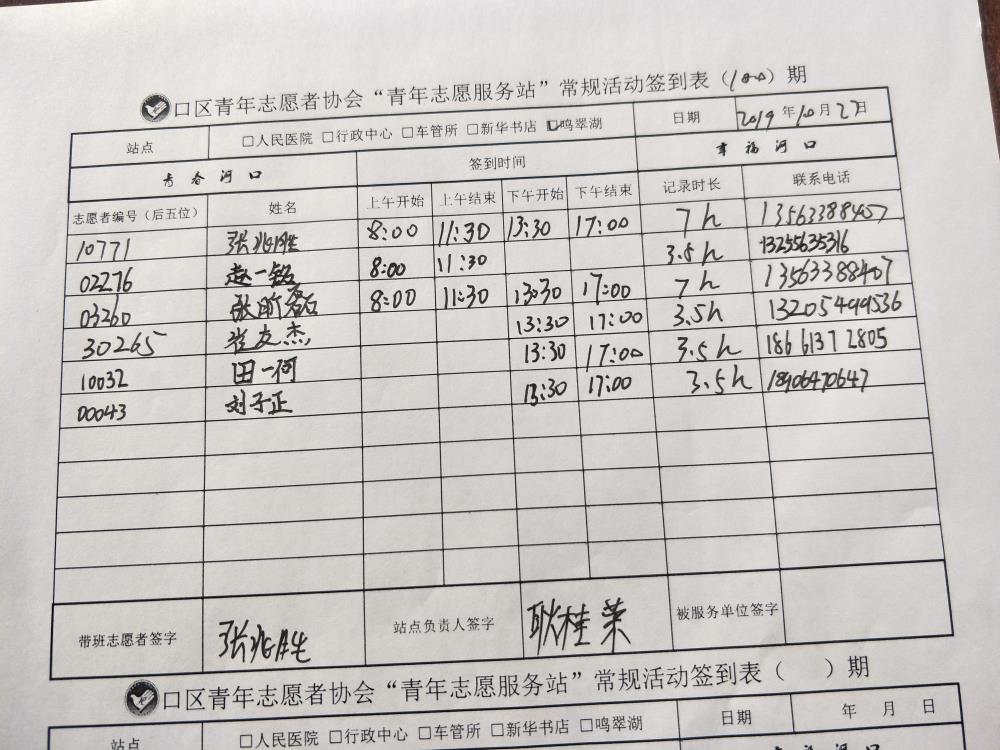 口区青年志愿者协会“青年志愿服务站”常规活动签到表（100）期
站点 □人民医院 □行政中心 □车管所 □新华书店 □鸣翠湖 日期 2019年10月27日
青春河口 签到时间 幸福河口
志愿者编号（后五位） 姓名 上午开始 上午结束 下午开始 下午结束 记录时长 联系电话
10771 张兆胜 8:00 11:30 13:30 17:00 7h 13563388407
02276 赵一铭 8:00 11:30 3.5h 13255635316
03260 8:00 11:30 13:30 17:00 7h 13563388407
30265 崔友杰 13:30 17:00 3.5h 13205499536
10032 田一何 13:30 17:00 3.5h 18661372805
00043 刘子正 13:30 17:00 3.5h 18906470647
带班志愿者签字 张兆胜 站点负责人签字 耿桂荣 被服务单位签字
口区青年志愿者协会“青年志愿服务站”常规活动签到表（ ）期
站点 □人民医院 □行政中心 □车管所 □新华书店 □鸣翠湖 日期 年 月 日